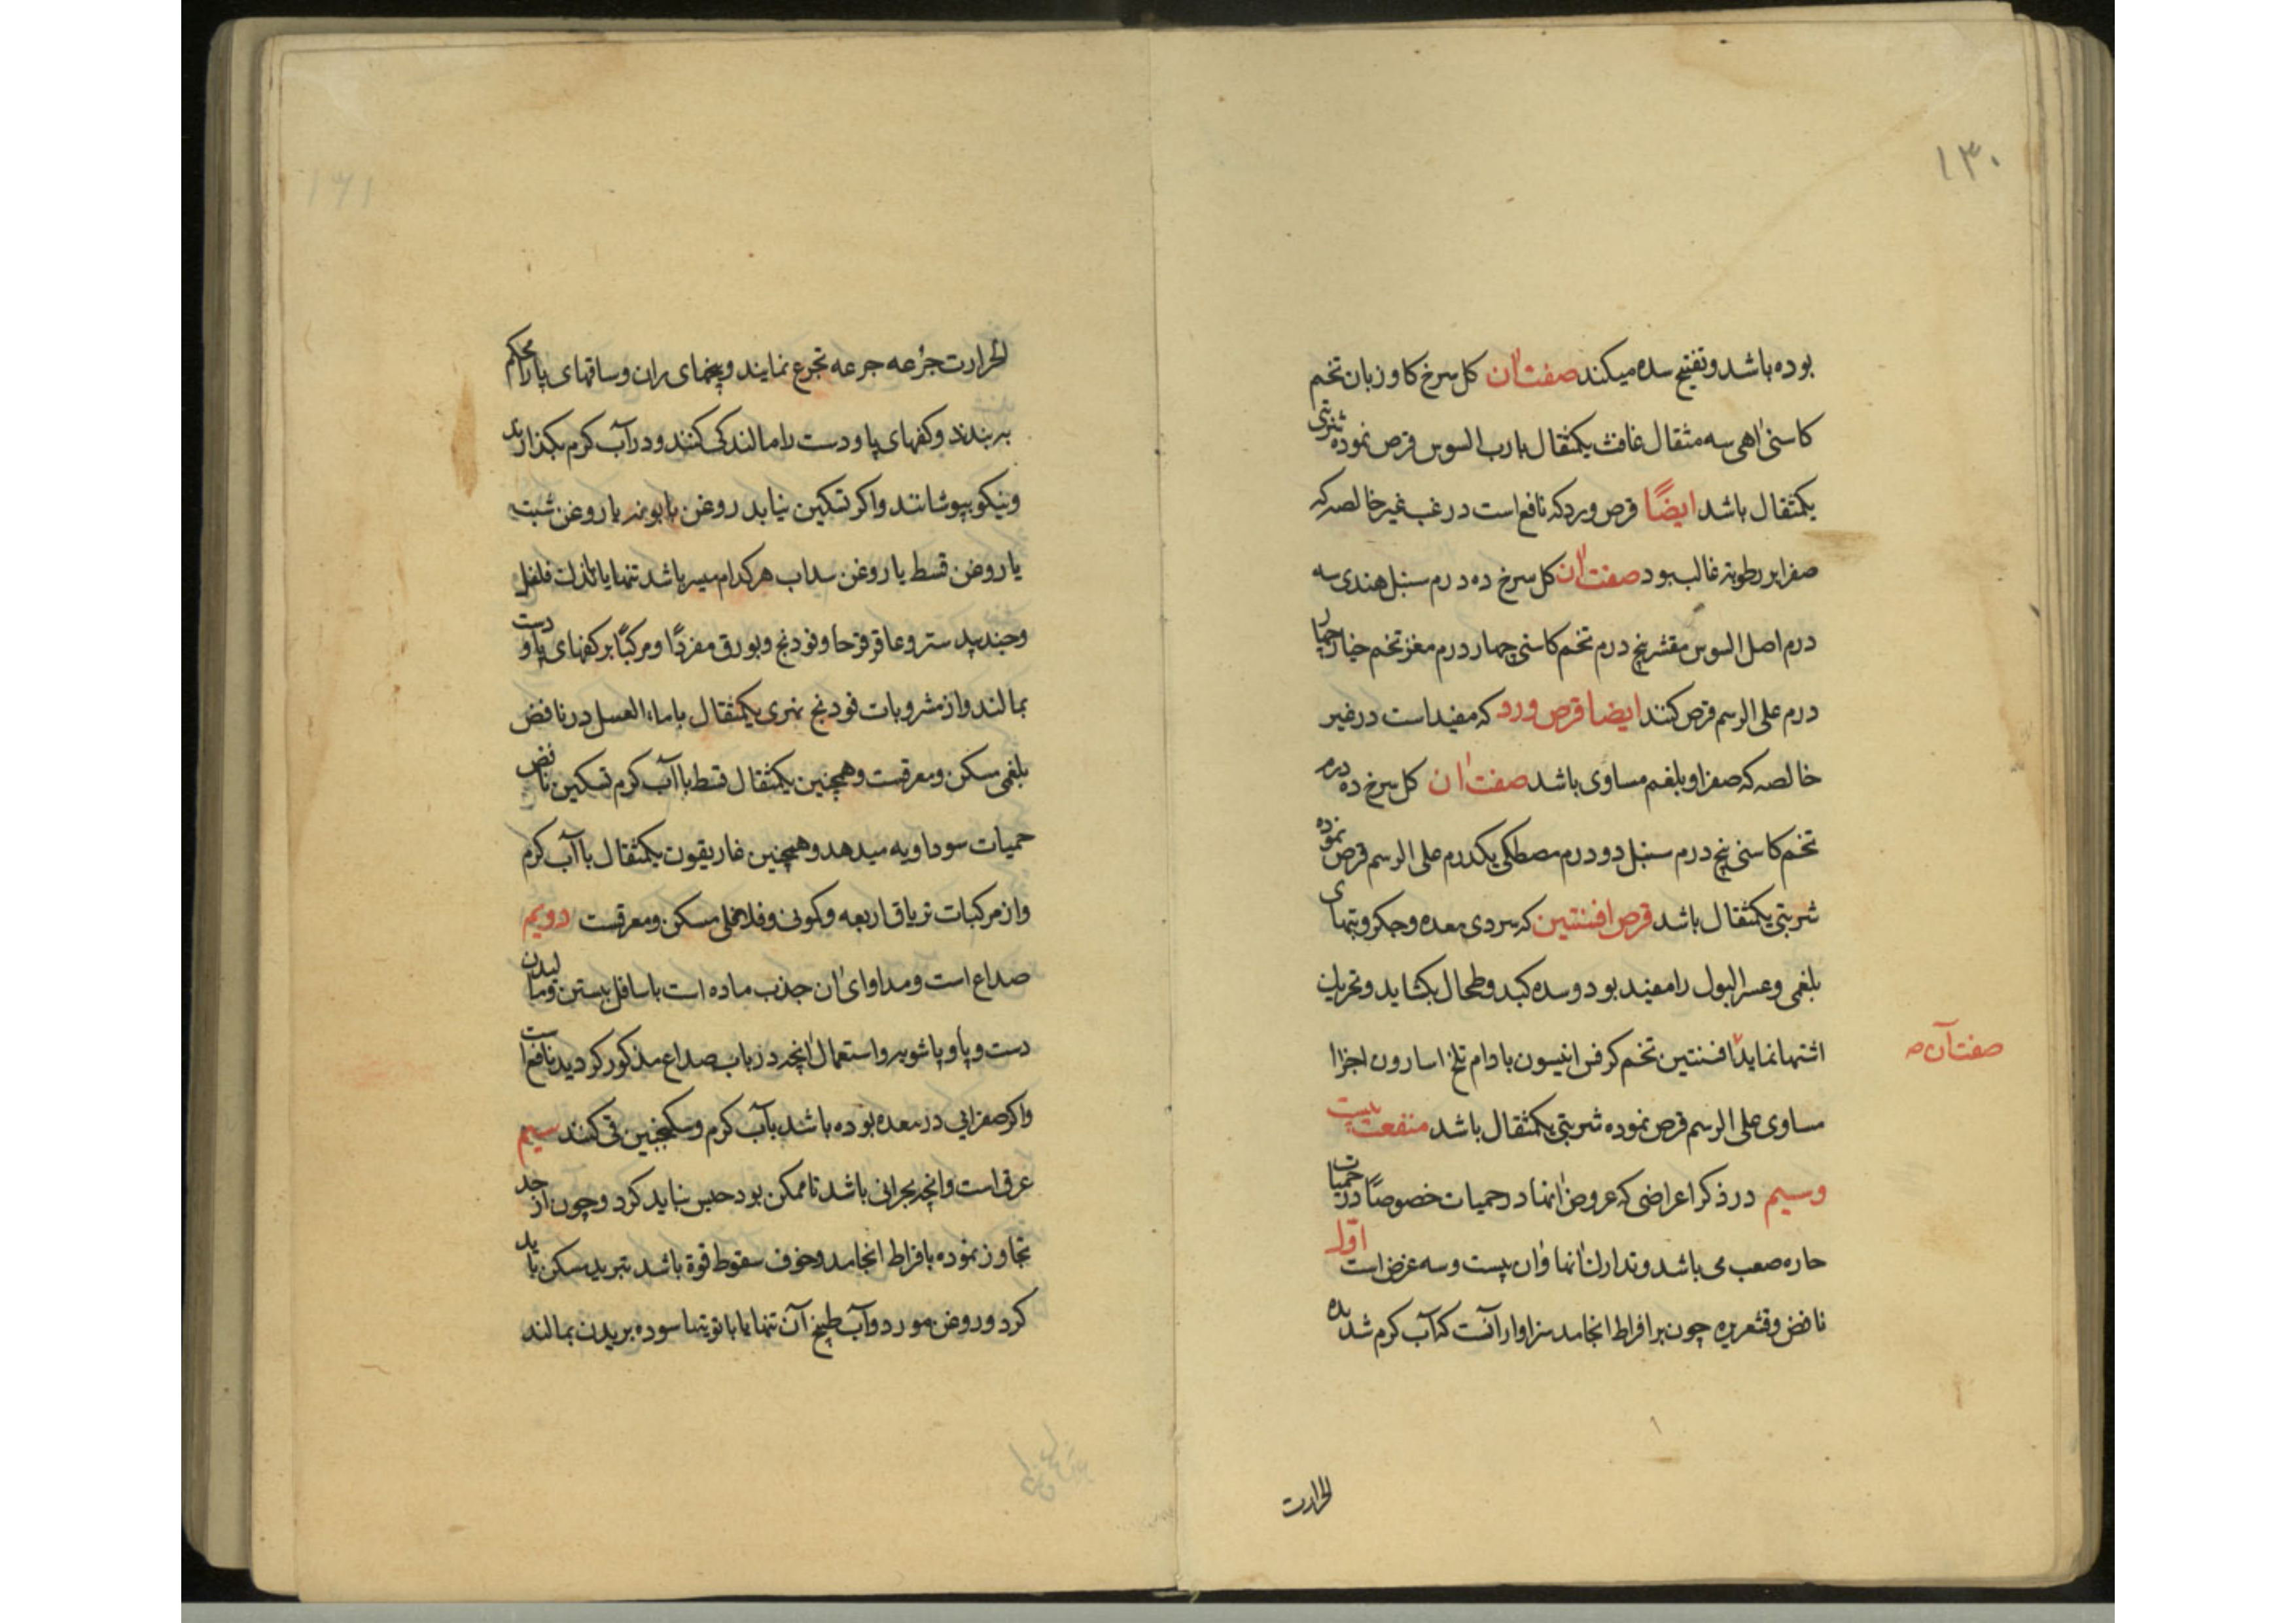 ۱۳۰
بوده باشد و تفتیح سده میکند صفت آن کل سرخ کاوزبان تخم
کاسنی اهی سه مثقال غافث یکمثقال بارب السوس قرص نموده شربتی
یکمثقال باشد ایضًا قرص ورد که نافع است در غب غیر خالصه که
صفرا بر رطوبة غالب بود صفت آن کل سرخ ده درم سنبل هندی سه
درم اصل السوس مقشر پنج درم تخم کاسنی چهار درم مغز تخم خیار چهار
درم علی الرسم قرص کنند ایضا قرص ورد که مفید است در غیر
خالصه که صفرا و بلغم مساوی باشد صفت آن کل سرخ ده درم
تخم کاسنی پنج درم سنبل دو درم مصطکی یکدرم علی الرسم قرص نموده
شربتی یکمثقال باشد قرص افسنتین که سردی معده و جکر و تبهای
بلغمی و عسر البول را مفید بود و سده کبد و طحال بکشاید و تحریک
اشتها نماید افسنتین تخم کرفس انیسون بادام تلخ اسارون اجزا
صفت آن ص
مساوی علی الرسم قرص نموده شربتی یکمثقال باشد منفعت بیست
و سیم در ذکر اعراضی که عروض آنها در حمیات خصوصًا در حمیات
حاره صعب می باشد و تدارک آنها و آن بیست و سه عرض است اوّل
نافض و قشعریره چون بر افراط انجامد سزاوار آنست که آب کرم شدیده
الحرارت
۱۳۱
الحرارت جرٔعه جرعه تجرع نمایند و بیخهای ران و ساقهای پا را محکم
به بندند و کفهای پا و دست را مالند کی کنند و در آب کرم بکذارند
و نیکو بپوشانند و اکر تسکین نیابد روغن بابونه یا روغن شبت
یا روغن قسط یا روغن سداب هر کدام میسر باشد تنها یا باندک فلفل
و جند بیدستر و عاقرقرحا و فودنج و بورق مفردًا و مرکبًا بر کفهای پا و دست
بمالند و از مشروبات فودنج نهری یکمثقال با ماء العسل در نافض
بلغمی مسکن و معرقست و همچنین یکمثقال قسط با آب کرم تسکین نافض
حمیات سوداویه میدهد و همچنین غاریقون یکمثقال با آب کرم
و از مرکبات تریاق اربعه و کمونی و فلافلی مسکن و معرقست دویم
صداع است و مداوای آن جذب ماده است باسافل ببستن و مالیدن
دست و پا و پاشویه و استعمال آنچه در باب صداع مذکور کردید نافع است
و اکر صفرایی در معده بوده باشد بآب کرم و سکنجبین قی کنند سیم
عرق است و آنچه بحرانی باشد تا ممکن بود حبس نباید کرد و چون از حد
تجاوز نموده بافراط انجامد و خوف سقوط قوة باشد بتبرید مسکن باید
کرد و روغن مورد و آب طبیخ آن تنها یا با توتیا سوده بر بدن بمالند